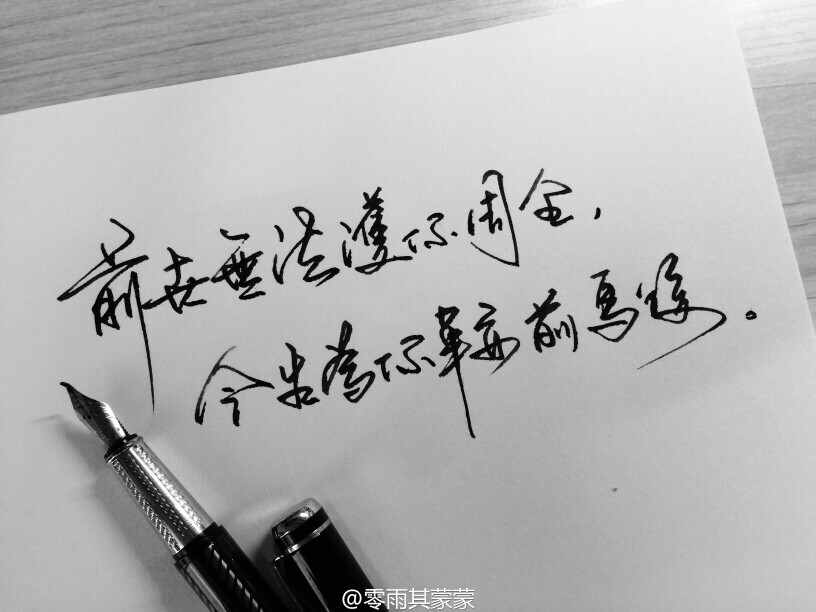 前世無法護你周全，
今生為你鞍前馬後。
@零雨其蒙蒙